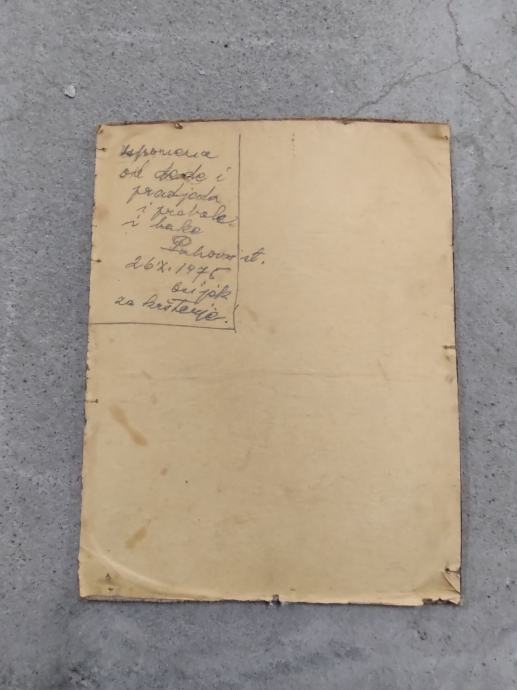 uspomena
od dede i
pradjeda
i prabake
i bake
st.
26X. 1975
osijek
za krštenje!